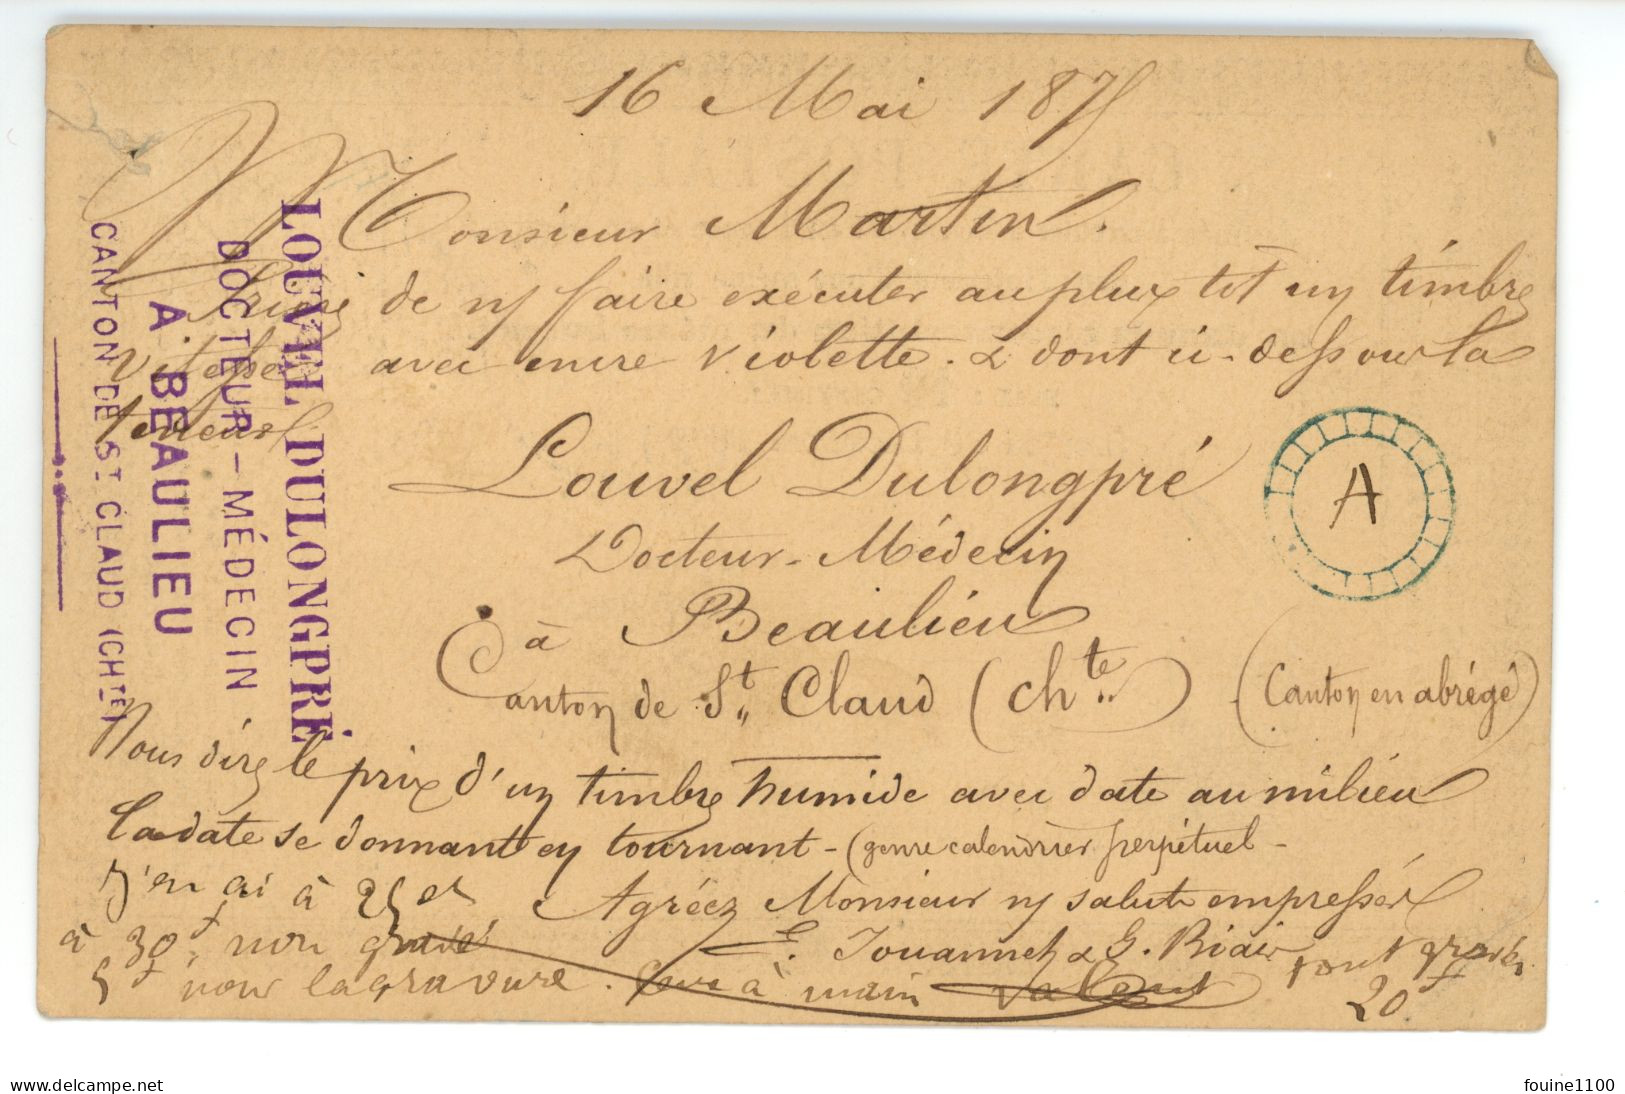 16 Mai 1875
Monsieur Martin.
Prière de ns faire exécuter au plus tôt un timbre
vitesse avec encre violette. & dont ci-dessous la
teneur
Louvel Dulongpré
Docteur-Médecin
à Beaulieu
Canton de St Claud (chte) (Canton en abrégé)
Nous dire le prix d'un timbre humide avec date au milieu
la date se donnant en tournant - (genre calendrier perpétuel -
J'en ai à 25 et Agréez Monsieur ns salut empressés
à 30f non gravé E. Jouannet & G. Riair tout gravés
5f pour la gravure. à main valent 20f
A
LOUVEL DULONGPRÉ
DOCTEUR-MÉDECIN
A BEAULIEU
CANTON DE ST CLAUD (CHTE)
www.delcampe.net
fouine1100